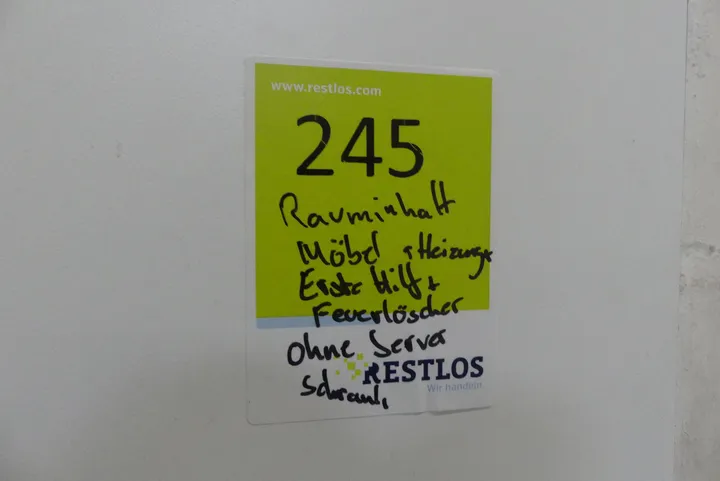 www.restlos.com
245
Rauminhalt
Möbel + Heizung
Erste Hilfe +
Feuerlöscher
ohne Server
RESTLOS
Wir handeln
Schrank